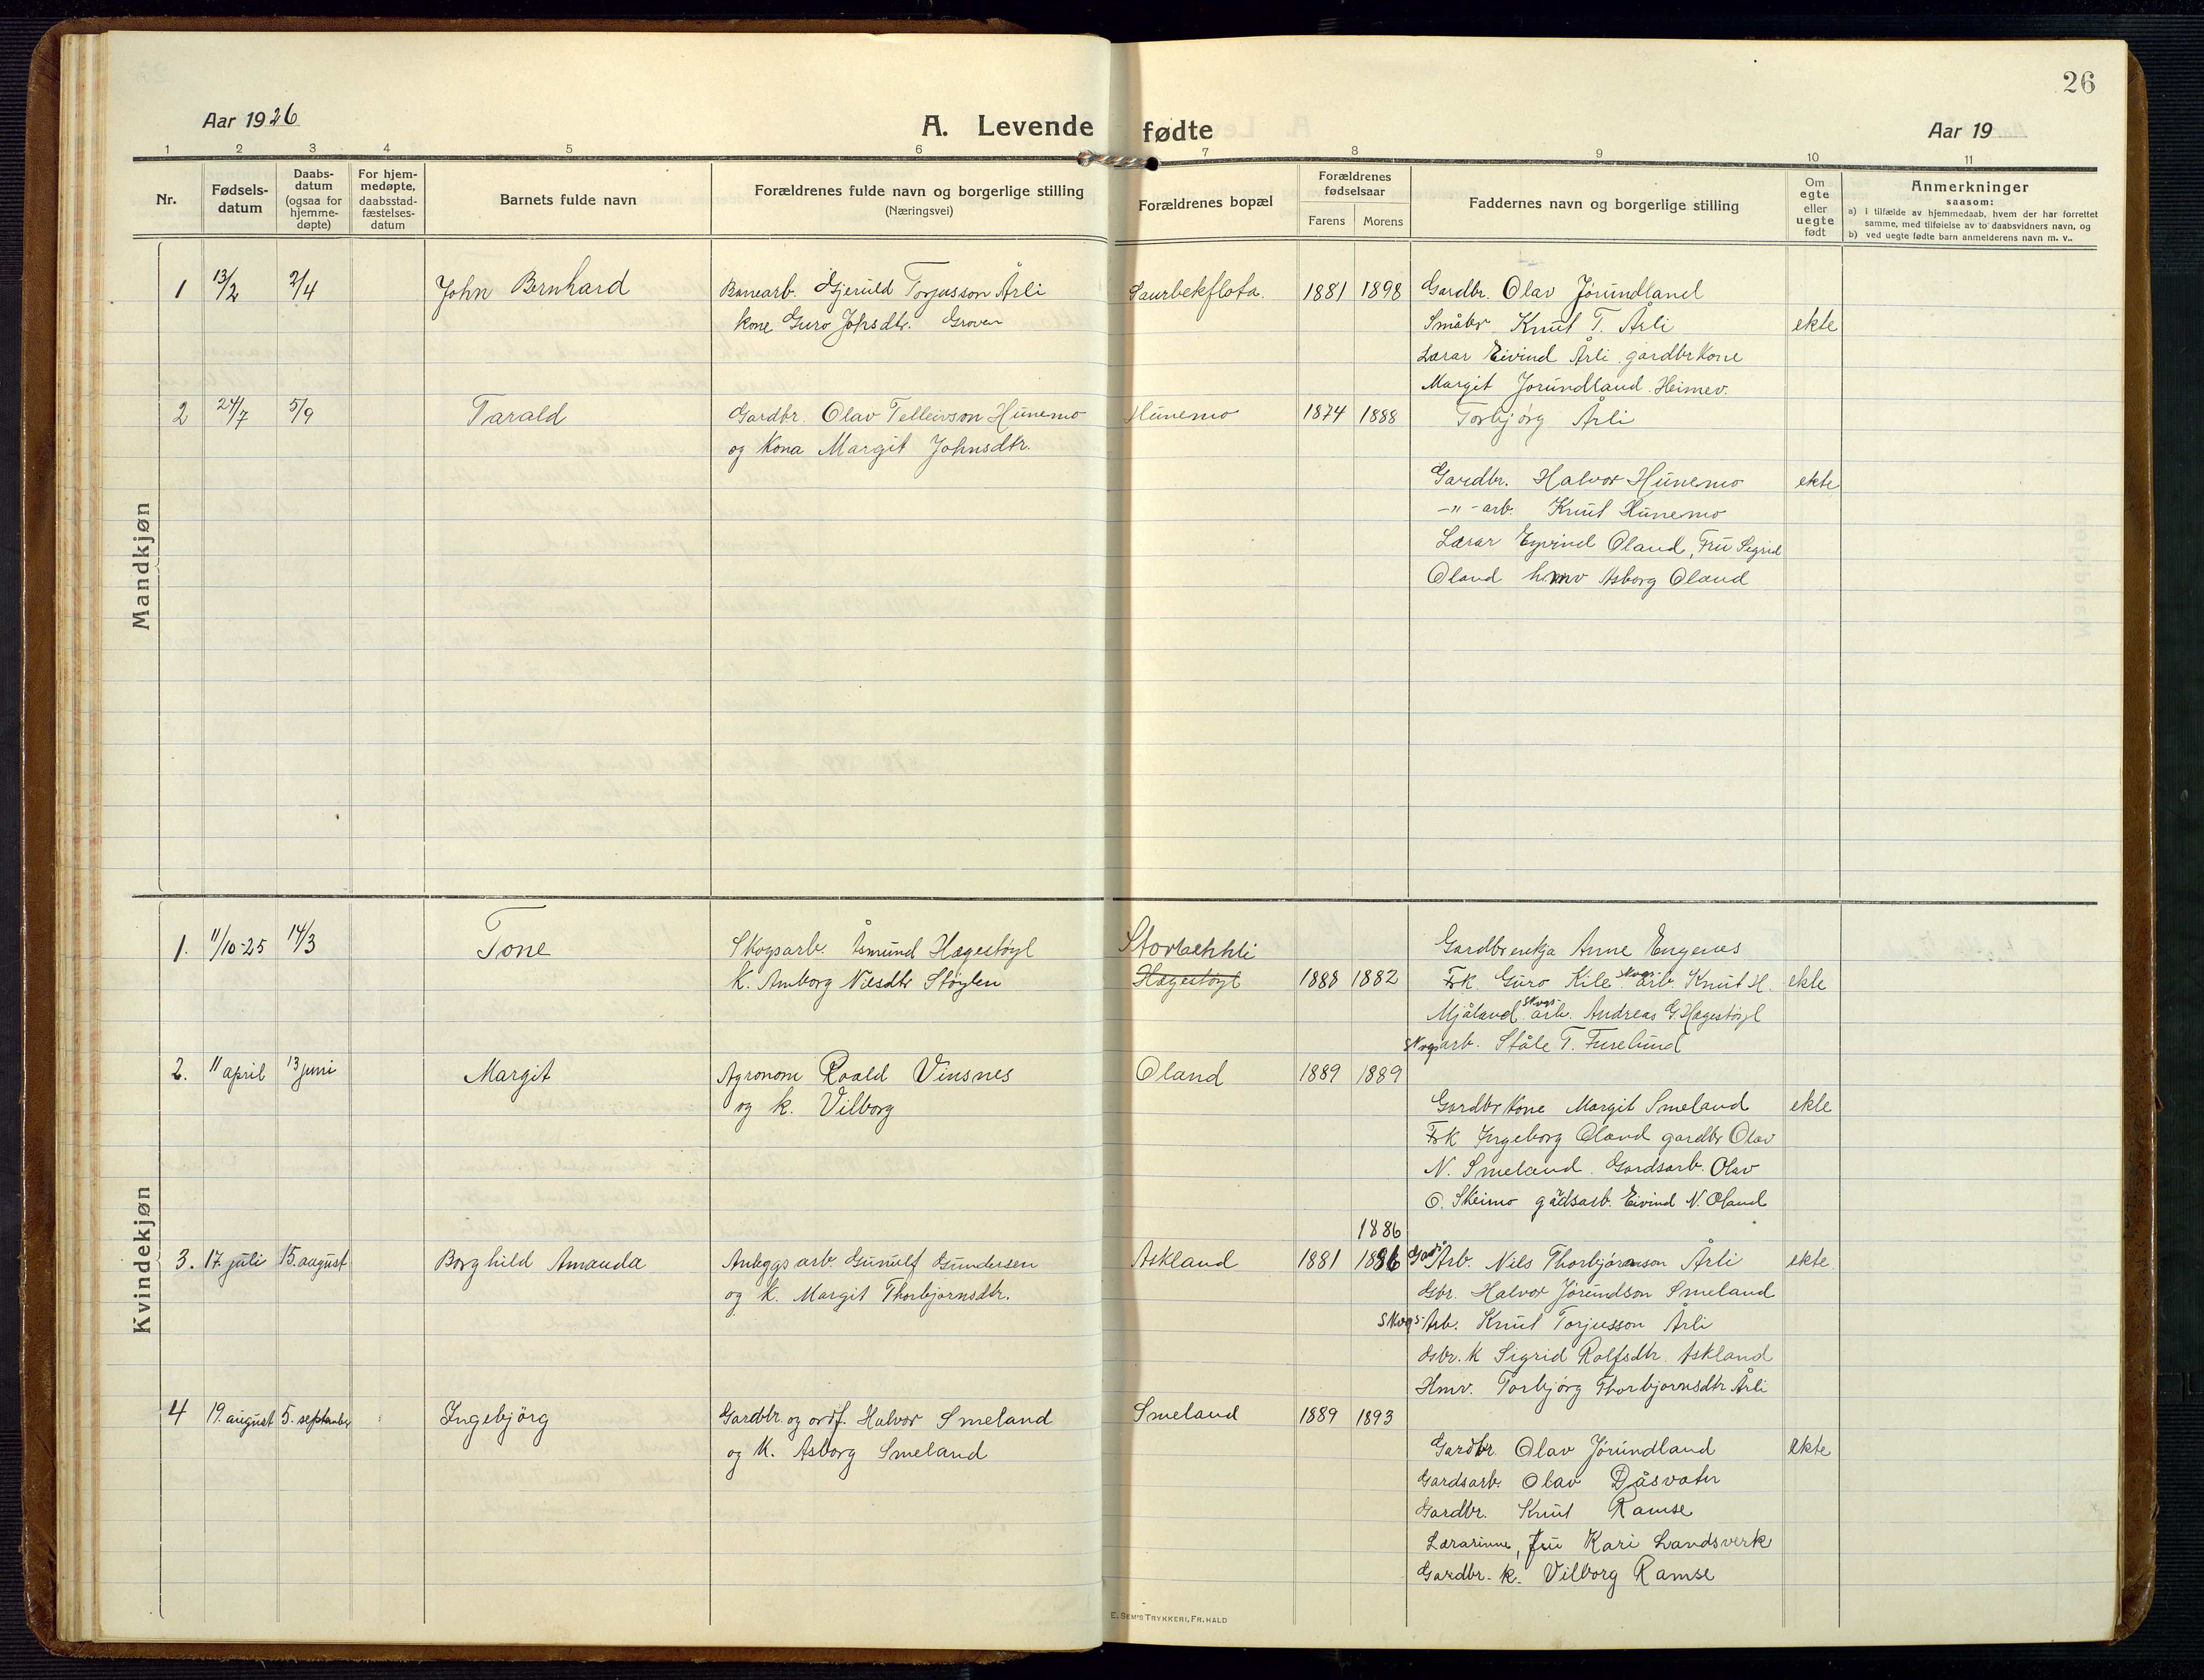 26
Aar 1926
A. Levende fødte
Aar 19
1 2 3 4 5 6 7 8 9 10 11
Nr.
Fødsels-
datum
Daabs-
datum
(ogsaa for
hjemme-
døpte)
For hjem-
medøpte,
daabsstad-
fæstelses-
datum
Barnets fulde navn
Forældrenes fulde navn og borgerlige stilling
(Næringsvei)
Forældrenes bopæl
Forældrenes
fødselsaar
Farens Morens
Faddernes navn og borgerlige stilling
Om
egte
eller
uegte
født
Anmerkninger
saasom:
a) i tilfælde av hjemmedaab, hvem der har forrettet
samme, med tilføielse av to daabsvidners navn, og
b) ved uegte fødte barn anmelderens navn m. v..
Mandkjøn
1 13/2 2/4 John Bernhard Banearb. Gjeruld Torjusson Årli Saurbekflota. 1881 1898 Gardbr. Olav Jørundland
kone Guro Johsdtr. Groven Småbr Knut T. Årli ekte
Lærar Eivind Årli gardbr kone
Margit Jorundland. Heimev.
2 24/7 5/9 Tarald Gardbr. Olav Telleivson Hunemo Hunemo 1874 1888 Torbjørg Årli
og Kona Margit Johnsdtr.
Gardbr. Halvor Hunemo ekte
-"- arb. Knut Hunemo
Lærar Eyvind Oland, Fru Sigrid
Oland hmv Asborg Oland
Kvindekjøn
1. 11/10-25 14/3 Tone Skogsarb. Åsmund Hægestøyl Storbekkli Gardbrenkja Anne Engenes
K. Amborg Nilsdtr Støylen Hægestøyl 1888 1882 Frk. Guro Kile skogsarb. Knut H. ekte
Mjåland skogsarb. Andreas G. Hægestøyl
Skogsarb. Ståle T. Furelund
2. 11 april 13 juni Margit Agronom Roald Vinsnes Oland 1889 1889
og k. Vilborg Gardbr kone Margit Smeland ekte
Frk Ingeborg Oland gardbr Olav
N. Smeland. Gardsarb. Olav
O. Skeimo gårdsarb. Eivind N. Oland
1886
3. 17. juli 15. august Borghild Amanda Anleggsarb. Gunulf Gundersen Askland 1881 1886 Arb. Nils Thorbjørnson Årli ekte
og K. Margit Thorbjørnsdtr. Gbr. Halvor Jørundson Smeland
Skogs-Arb. Knut Torjusson Årli
Gbr. K Sigrid Rolfsdtr. Askland
Hmv. Torbjørg Thorbjørnsdtr Årli
4 19. august 5. september Ingebjörg Gardbr. og ordf. Halvor Smeland Smeland 1889 1893
og K. Asborg Smeland Gardbr. Olav Jørundland ekte
Gardsarb. Olav Dåsvatn
Gardbr. Knut Ramse
Lærarinne, fru Kari Landsverk
Gardbr. k. Vilborg Ramse
E. SEM'S TRYKKERI, FR. HALD